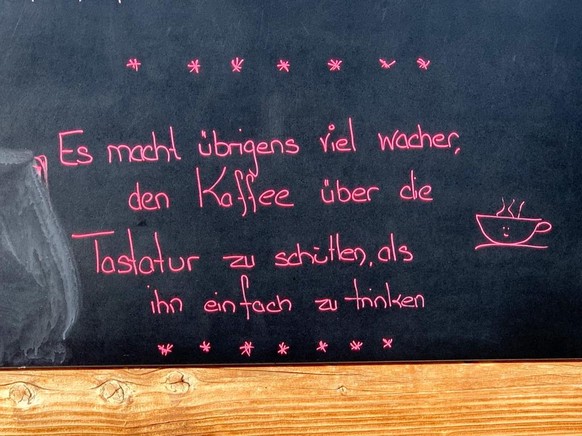 * * * * * * *
Es macht übrigens viel wacher,
den Kaffee über die
Tastatur zu schütten, als
ihn einfach zu trinken
* * * * * * *